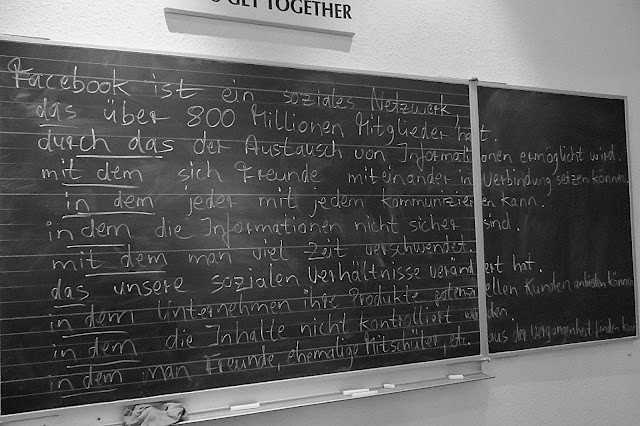 GET TOGETHER
Facebook ist ein soziales Netzwerk,
das über 800 Millionen Mitglieder hat.
durch das der Austausch von Informationen ermöglicht wird.
mit dem sich Freunde miteinander in Verbindung setzen können.
in dem jeder mit jedem kommunizieren kann.
in dem die Informationen nicht sicher sind.
mit dem man viel Zeit verschwendet.
das unsere sozialen Verhältnisse verändert hat.
in dem Unternehmen ihre Produkte potenziellen Kunden anbieten können
in dem die Inhalte nicht kontrolliert werden.
in dem man Freunde, ehemalige Mitschüler, etc. aus der Vergangenheit finden